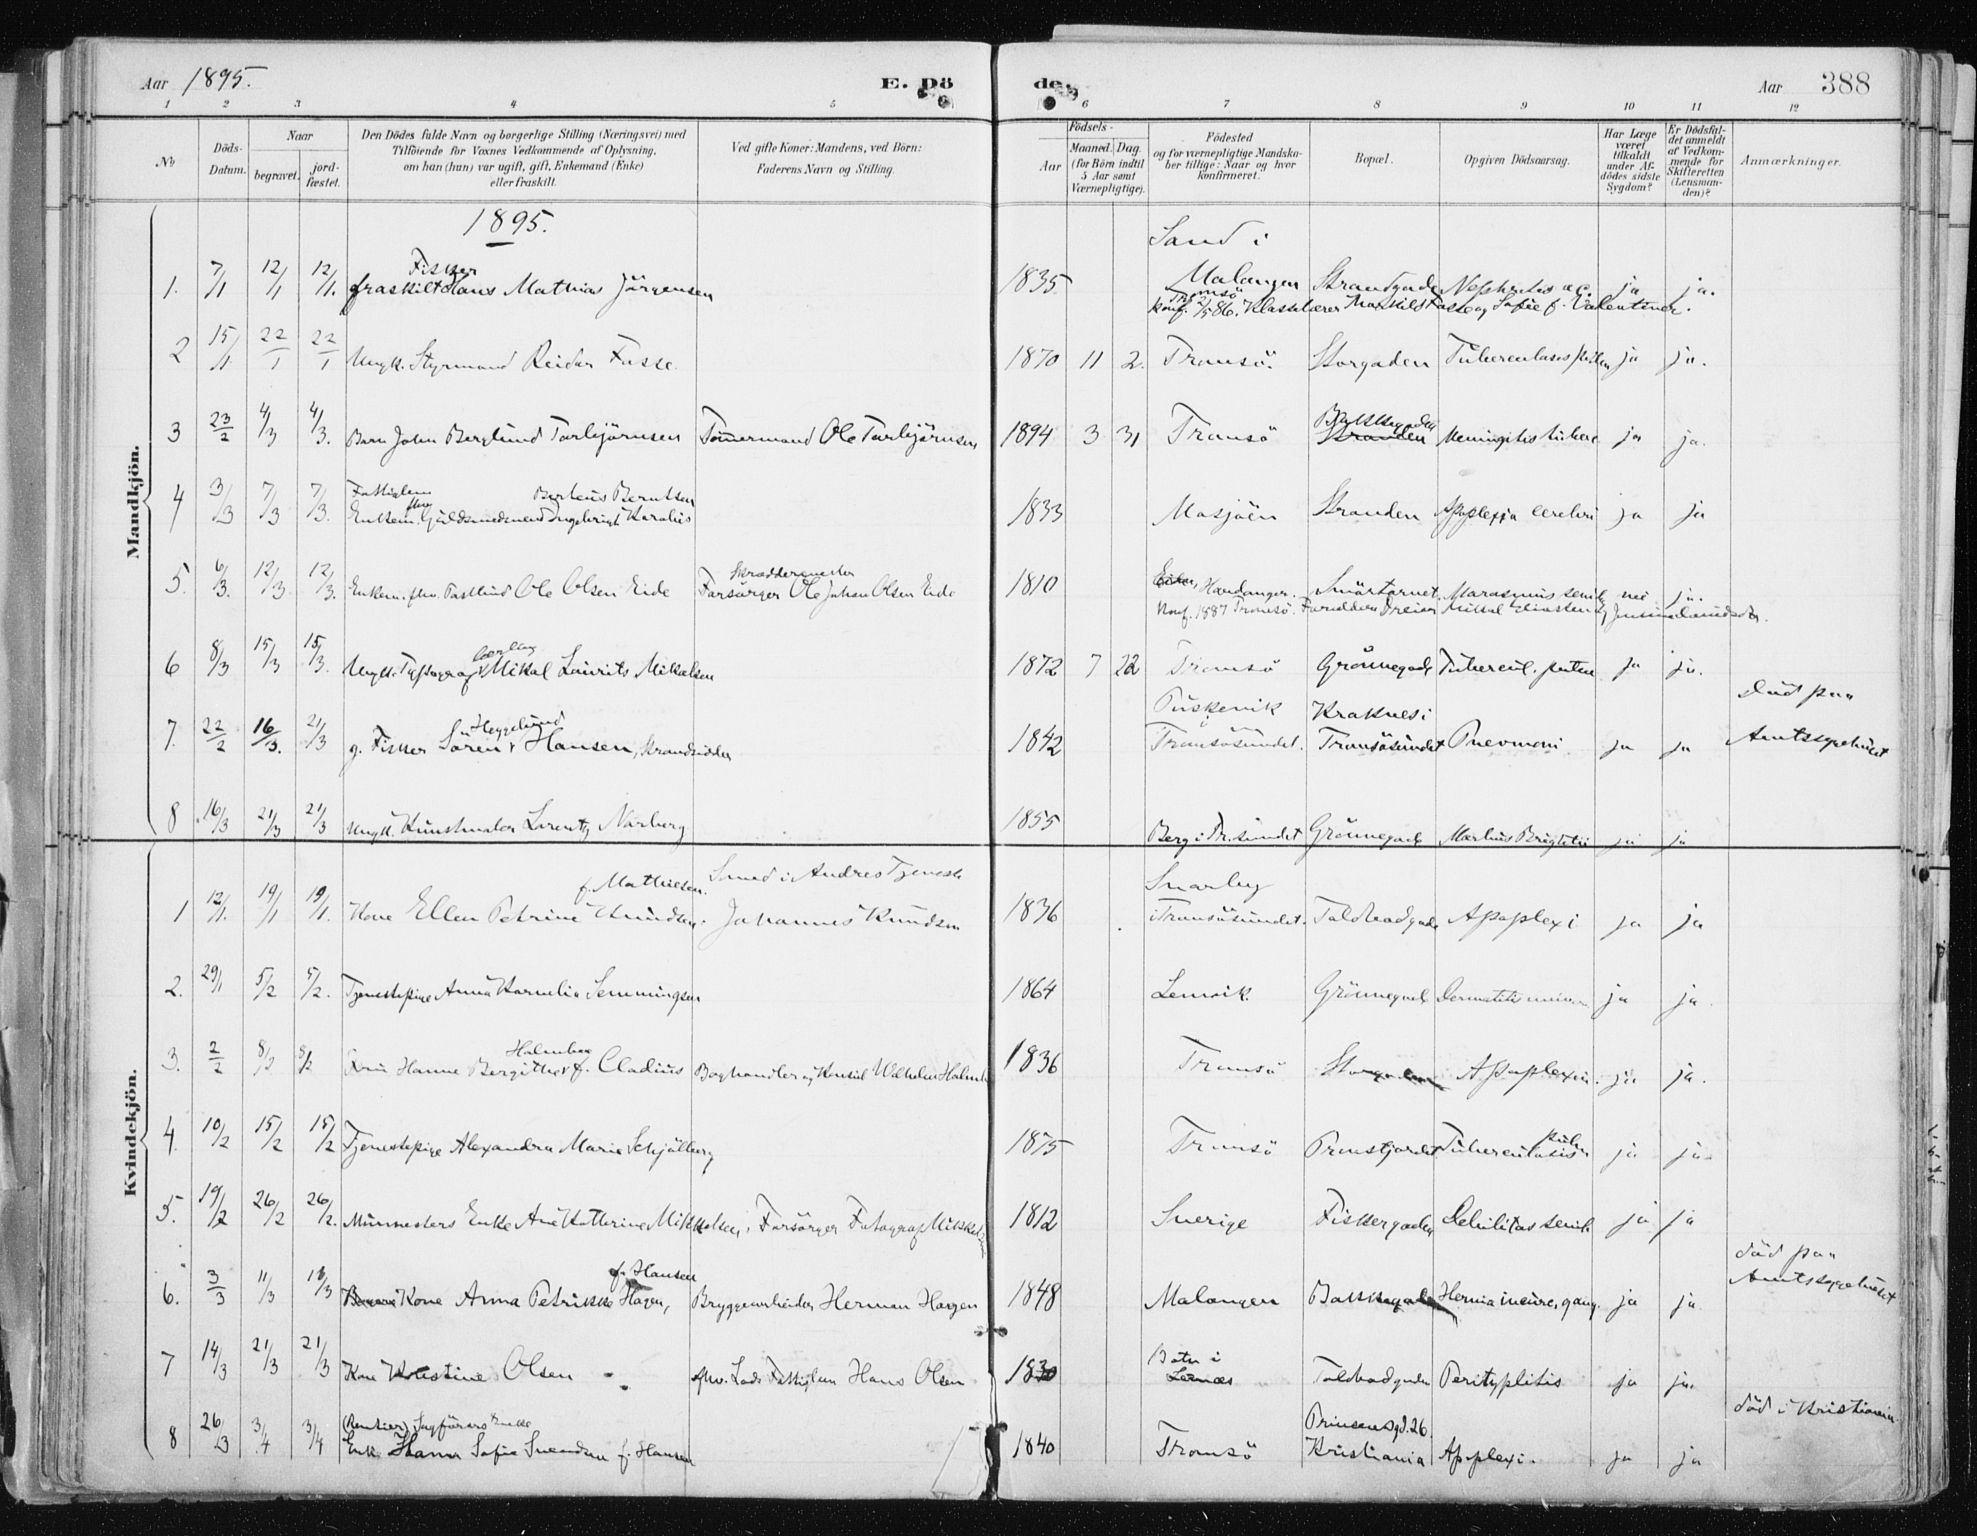 Aar 1895.
E. Dö de.
Aar 388
1 2 3 4 5 6 7 8 9 10 11 12
No
Döds-Datum.
Naar
begravet.
jord-fæstet.
Den Dödes fulde Navn og borgerlige Stilling (Næringsvei) med
Tilföiende for Voxnes Vedkommende af Oplysning,
om han (hun) var ugift, gift, Enkemand (Enke)
eller fraskilt.
Ved gifte Koner: Mandens, ved Börn:
Faderens Navn og Stilling.
Födsels-
Aar
Maaned. Dag.
(for Börn indtil
5 Aar samt
Værnepligtige).
Födested
og for værnepligtige Mandska-
ber tillige: Naar og hvor
konfirmeret.
Bopæl.
Opgiven Dödsaarsag.
Har Læge
været
tilkaldt
under Af-
dödes sidste
Sygdom?
Er Dödsfal-
det anmeldt
af Vedkom-
mende for
Skifteretten
(Lensman-
den)?
Anmærkninger.
Mandkjön.
1895.
Fisker Sand i
1. 7/1 12/1 12/1. fraskilt Hans Mathias Jörgensen 1835 Malangen Strandgade ja ja.
Tromsö
2 15/1 22/1 22/1 Ungk. Styrmand Reidar Fasse 1870 11 2. Tromsö. Storgaden Tuberculosis ja ja.
Bakkegaden
3 23/2 4/3 4/3. Barn John Berglund Torbjörnsen Tömermand Ole Torbjörnsen 1894 3 31 Tromsö Stranden Meningitis tuberc ja ja.
Fattiglem Berteus Berntsen
4 3/3 7/3 7/3. Enkem. fhv. Guldsmedsvend Ingebrigt Karolius 1833 Mosjöen Stranden Apoplexia cerebri ja ja
Skræddermester
5. 6/3. 12/3 12/3. Enkem. fhv. Ole Olsen Eide Forsörger Ole Johan Olsen Eide 1810 Hardanger. Marasmus senil nei ja.
Konf. 1887 Tromsö.
6 8/3 15/3 15/3. Ungk. Typograf Mikal Laurits Mikalsen 1872 7 22 Tromsö Grönnegade Tubercul. pulm ja ja.
Heggelund Kraknes i Död paa
7. 22/2 16/3. 21/3 g. Fisker Sören Hansen, Strandsidder 1842 Tromsösundet. Tromsösundet Pnevmoni ja ja Amtssygehuset
8 16/3 21/3 21/3 Ungk. Kunstmaler Lorentz Norberg 1855 Berg i Tr.sundet Grönnegade Morbus Brigtii ja ja
Kvindekjön.
f. Mathiesen. Smed i Andres Tjeneste Snarby
1 12/1. 19/1 19/1. Kone Ellen Petrine Knudsen. Johannes Knudsen 1836 i Tromsösundet. Toldbodgade Apoplexi ja ja
2. 29/1 5/2 5/2. Tjenestepige Anna Kornelia Semmingsen 1864 Lenvik. Grönnegade Dermatitis ja ja
Holmboe
3. 2/2 8/2 8/2 Hanne Bergithe f. Cladius Boghandler og Konsul Wilhelm Holmboe 1836 Tromsö Storgaden Apoplexia. ja ja.
4. 10/2 15/2 15/2 Tjenestepige Alexandra Marie Schjölberg 1875 Tromsö Pronstjordet Tuberculosis pulm ja ja
5. 19/2 26/2 26/2. Murmesters Enke Ane Katherine Mikkelsen, Forsörger Fotograf Mikkelsen 1812 Sverige Fiskergaden Debilitas senil ja ja
f. Hansen död paa
6. 3/3 11/3 18/3 Kone Anna Petrikke Hagen, Bryggearbeider Herman Hagen 1848 Malangen Bakkegaden Hernia ja ja Amtssygehuset
Botn i
7 14/3 21/3 21/3 Kone Olsen fhv. Lods Fattiglem Hans Olsen 1830 Toldbodgaden Perityplitis ja ja.
(Rentier) Sagförers Enke Prinsensgd. 26. död i Kristiania
8 26/3 3/4 3/4 Enke Hanna Sofie Svendsen f. Hansen 1840 Tromsö Kristiania Apoplexi. ja ja